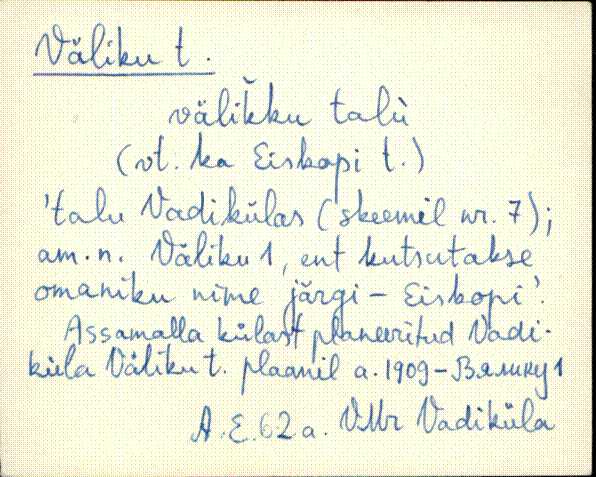 Väliku t.
välik̆ku talù
(vt. ka Eiskopi t.)
'talu Vadikülas (skeemil nr. 7);
am. n. Väliku 1, ent kutsutakse
omaniku nime järgi - Eiskopi'.
Assamalla külast planeeritud Vadi-
küla Väliku t. plaanil a. 1909 - Вялику 1
A. E. 62 a. VMr Vadiküla